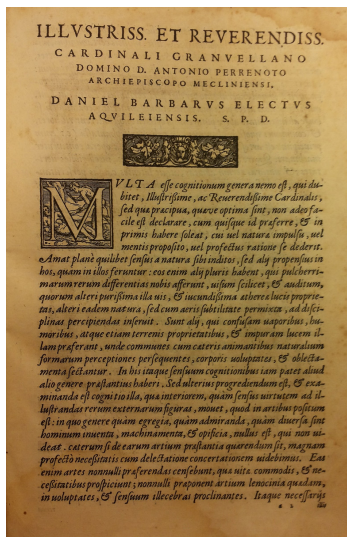 ILLVSTRISS. ET REVERENDISS.
CARDINALI GRANVELLANO
DOMINO D. ANTONIO PERRENOTO
ARCHIEPISCOPO MECLINIENSI.
DANIEL BARBARVS ELECTVS
AQVILEIENSIS. S. P. D.
MVLTA esse cognitionum genera nemo est, qui du-
bitet, Illustrissime, ac Reuerendissime Cardinalis,
sed quæ præcipua, quæue optima sint, non adeo fa-
cile est declarare, cum quisque id præferre, & in
primis habere soleat, cui uel natura impulsu, uel
mentis proposito, uel profectus ratione se dederit.
Amat planè quilibet sensus a natura sibi inditos, sed alij propensius in
hos, quam in illos feruntur: eos enim alij pluris habent, qui pulcherri-
marum rerum differentias nobis afferunt, uisum scilicet, & auditum,
quorum alteri purissima illa uis, & iucundissima ætherea lucis proprie-
tas, alteri eadem natura, sed cum aeris subtilitate permixta, ad disci-
plinas percipiendas inseruit. Sunt alij, qui confusam uaporibus, hu-
moribus, atque etiam terrenis proprietatibus, & impuram lucem il-
lam præferant, unde communes cum cæteris animantibus naturalium
formarum perceptiones persequentes, corporis uoluptates, & oblecta-
menta sectantur. In his itaque sensuum cognitionibus iam patet aliud
alio genere præstantius haberi. Sed ulterius progrediendum est, & exa-
minanda est cognitio illa, quæ interiorem, quàm sensus uirtutem ad il-
lustrandas rerum externarum figuras, mouet, quod in artibus positum
est: in quo genere quàm egregia, quàm admiranda, quàm diuersa sint
hominum inuenta, machinamenta, & opificia, nullus est, qui non ui-
deat. cæterum si de earum artium præstantia quærendum sit, magnam
profectò necessitatis cum delectatione concertationem uidebimus. Eas
enim artes nonnulli præferendas censebunt, quæ uitæ commodis, & ne-
cessitatibus prospiciunt; nonnulli præponent artium lenocinia quædam,
in uoluptates, & sensuum illecebras proclinantes. Itaque necessarijs
a 2